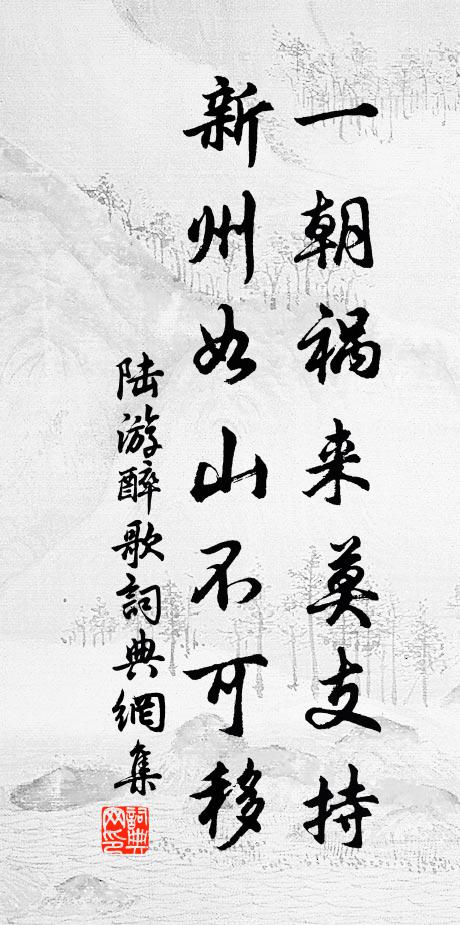 一朝祸来莫支持
新州如山不可移
陆游醉歌詞典網集
詞典网印